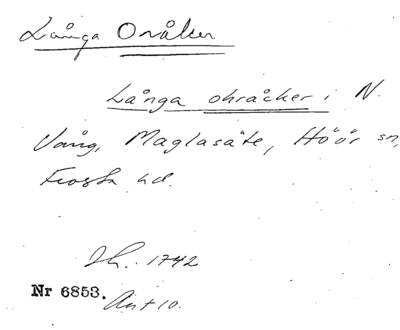 Långa Onåker
Långa ohråcker i N.
Vång, Maglasäte, Höör sn,
Frosta hd.
Sk. 1742
Nr 6853. Akt 10.